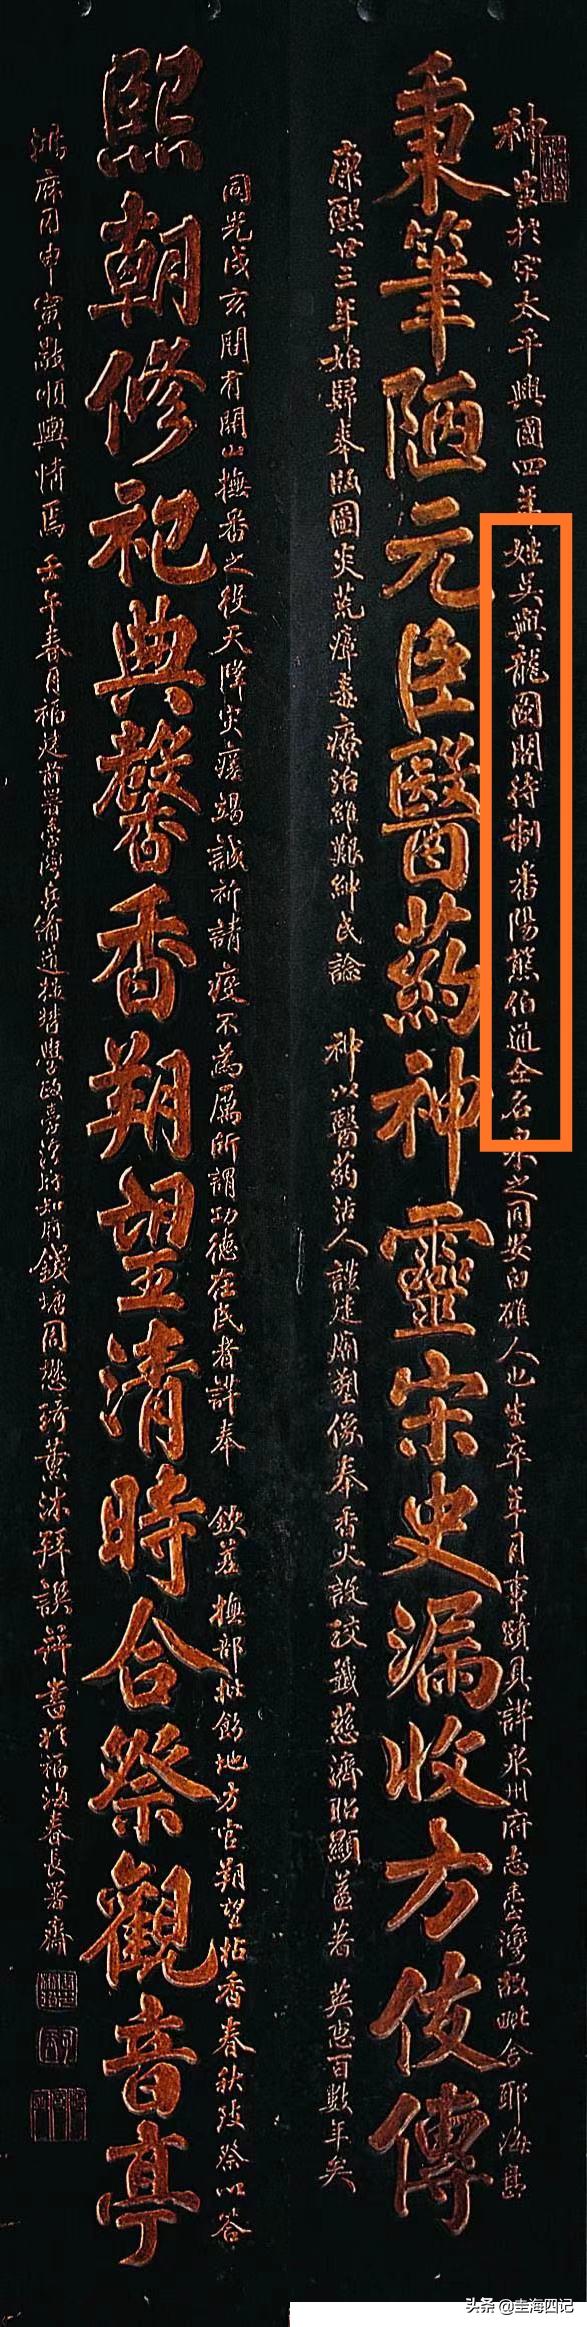 神生於宋太平興國四年姓吳與龍圖閣待制番陽熊伯通全名泉之同安白礁人也生卒年月事蹟具詳泉州府志臺灣故毗舍耶海島
秉筆陋元臣醫藥神靈宋史漏收方伎傳
康熙廿三年始歸奉版圖炎荒瘴毒療治維艱紳民諗
神以醫藥活人謹建廟塑像奉香火設筊籤慈濟昭顯益著
英惠百數年矣
同光戊亥間有開山撫番之役天降災㾮竭誠祈請疫不為厲所謂功德在民者詳奉
欽差撫部批飭地方官朔望拈香春秋致祭以答
熙朝修祀典馨香朔望清時合祭觀音亭
鴻庥用申寅敬順輿情焉
壬午春月福建前署臺灣兵備道提督學政臺灣府知府錢塘周懋琦薰沐拜譔并書於福海春長署齋
头条 @圭海四记